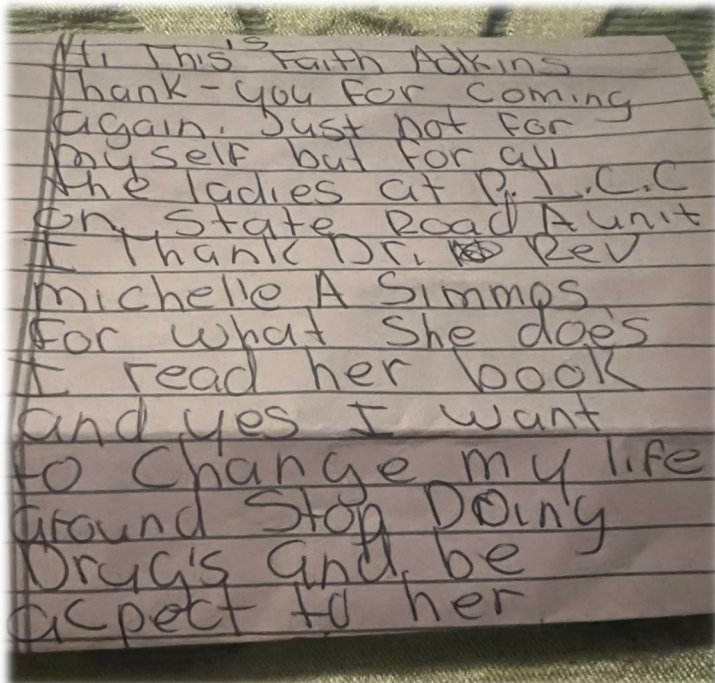 Hi This's Faith Adkins
Thank-you for coming
again. Just not for
myself but for all
the ladies at P.I.C.C
on State Road A unit
I Thank Dr. Rev
Michelle A Simmos
for what She does
I read her book
and yes I want
to Change my life
around Stop DOing
Drug's and be
acpect to her